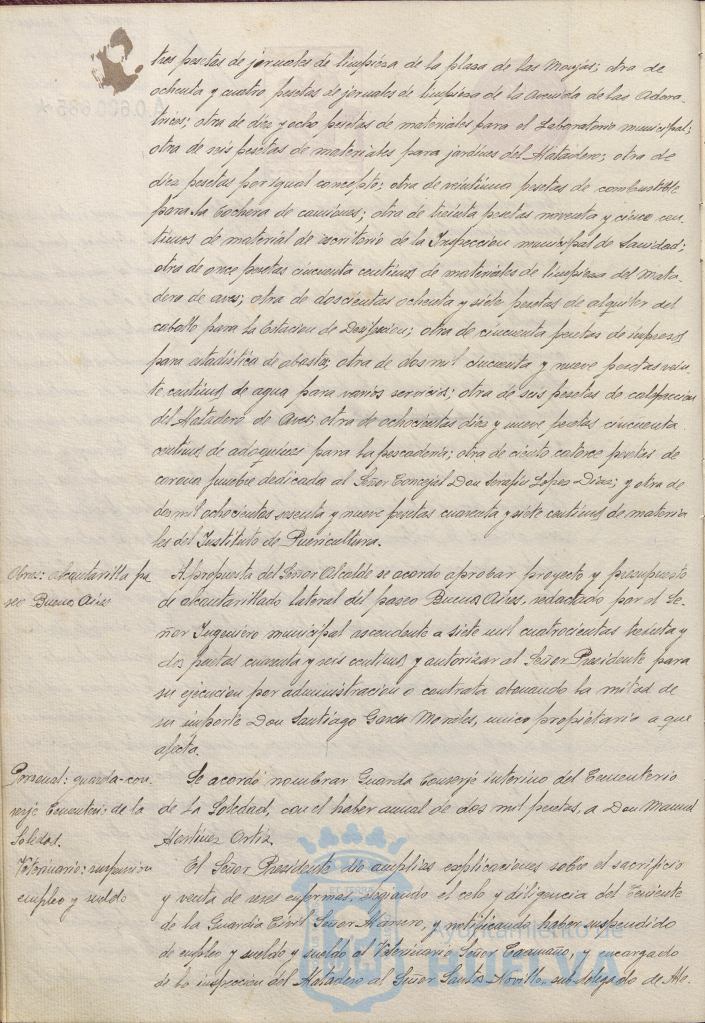 tres pesetas de jornales de limpieza de la plaza de las Monjas; otra de
ochenta y cuatro pesetas de jornales de limpieza de la Avenida de las Adora-
trices; otra de diez y ocho pesetas de materiales para el Laboratorio municipal;
otra de seis pesetas de materiales para jardines del Matadero; otra de
diez pesetas por igual concepto; otra de veintiuna pesetas de combustible
para la Cochera de camiones; otra de treinta pesetas noventa y cinco cen-
timos de material de escritorio de la Inspeccion municipal de Sanidad;
otra de once pesetas cincuenta centimos de materiales de limpieza del Mata-
dero de aves; otra de doscientas ochenta y siete pesetas de alquiler del
caballo para la Estacion de Desinfeccion; otra de cincuenta pesetas de impresos
para estadistica de abastos; otra de dos mil cincuenta y nueve pesetas vein-
te centimos de agua para varios servicios; otra de seis pesetas de calefaccion
del Matadero de Aves; otra de ochocientas diez y nueve pesetas cincuenta
centimos de adoquines para la pescaderia; otra de ciento catorce pesetas de
corona funebre dedicada al Señor Concejal Don Serafin Lopez Diaz; y otra de
dos mil ochocientas sesenta y nueve pesetas cuarenta y siete centimos de materia-
les del Instituto de Puericultura.
Obras: alcantarilla pa-
seo Buenos Aires
A propuesta del Señor Alcalde se acordo aprobar proyecto y presupuesto
de alcantarillado lateral del paseo Buenos Aires, redactado por el Se-
ñor Ingeniero municipal ascendente a siete mil cuatrocientas treinta y
dos pesetas cuarenta y seis centimos y autorizar al Señor Presidente para
su ejecucion por administracion o contrata abonando la mitad de
su importe Don Santiago Garcia Morales, unico propietario a que
afecta.
Personal: guarda-con-
serje Cementerio de la
Soledad.
Se acordó nombrar Guarda Conserje interino del Cementerio
de La Soledad, con el haber anual de dos mil pesetas, a Don Manuel
Martinez Ortiz.
Veterinario: suspension
empleo y sueldo
El Señor Presidente dio amplias explicaciones sobre el sacrificio
y venta de reses enfermas, elogiando el celo y diligencia del Teniente
de la Guardia Civil Señor y notificando haber suspendido
de empleo y sueldo y sueldo el Veterinario Señor y encargado
de la inspeccion del Matadero al Señor Santos Novillo, sub-delegado de Me-
Ayuntamiento de
HUELVA